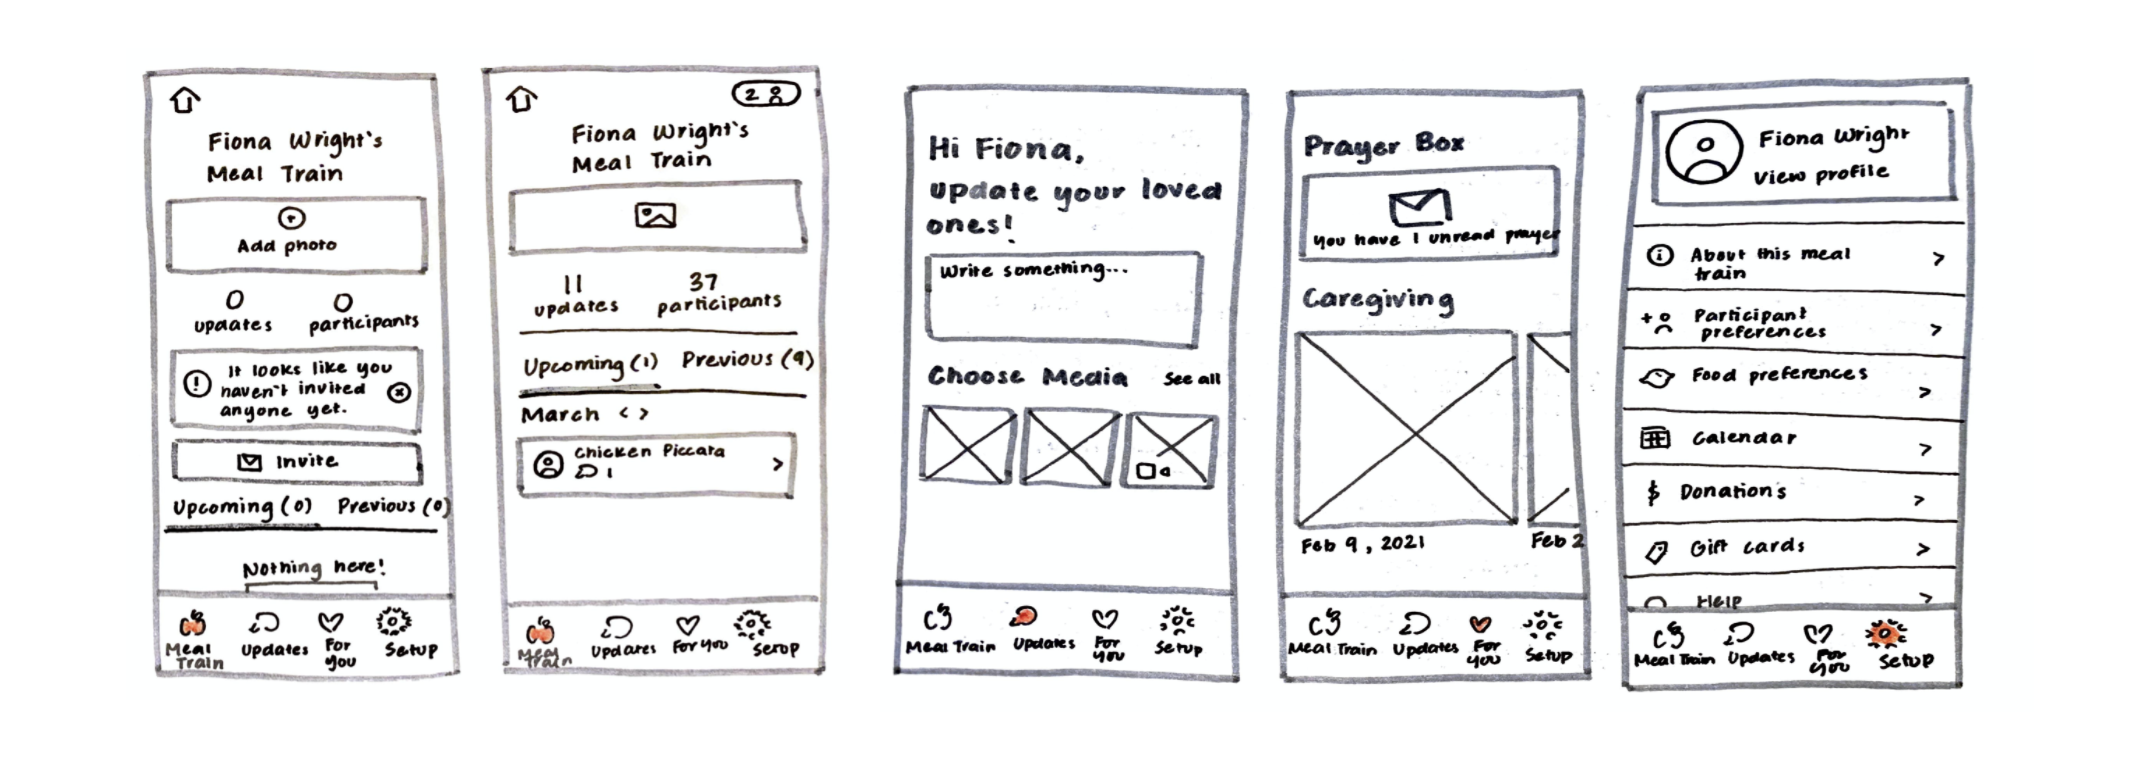 Fiona Wright's
Meal Train
Add photo
0
updates
0
participants
It looks like you
haven't invited
anyone yet.
Invite
Upcoming (0)
Previous (0)
Nothing here!
Meal
Train
Updates
For
you
Setup
2
Fiona Wright's
Meal Train
11
updates
37
participants
Upcoming (1)
Previous (9)
March < >
Chicken Piccata
1
>
Meal
Train
Updates
For you
Setup
Hi Fiona,
update your loved
ones!
Write something...
Choose Media
See all
Meal Train
Updates
For
you
Setup
Prayer Box
you have 1 unread prayer
Caregiving
Feb 9, 2021
Feb 2
Meal Train
Updates
For
you
Setup
Fiona Wright
View profile
About this meal
train
>
Participant
preferences
>
Food preferences
>
Calendar
>
$ Donations
>
Gift cards
>
Help
>
Meal Train
Updates
For
you
Setup